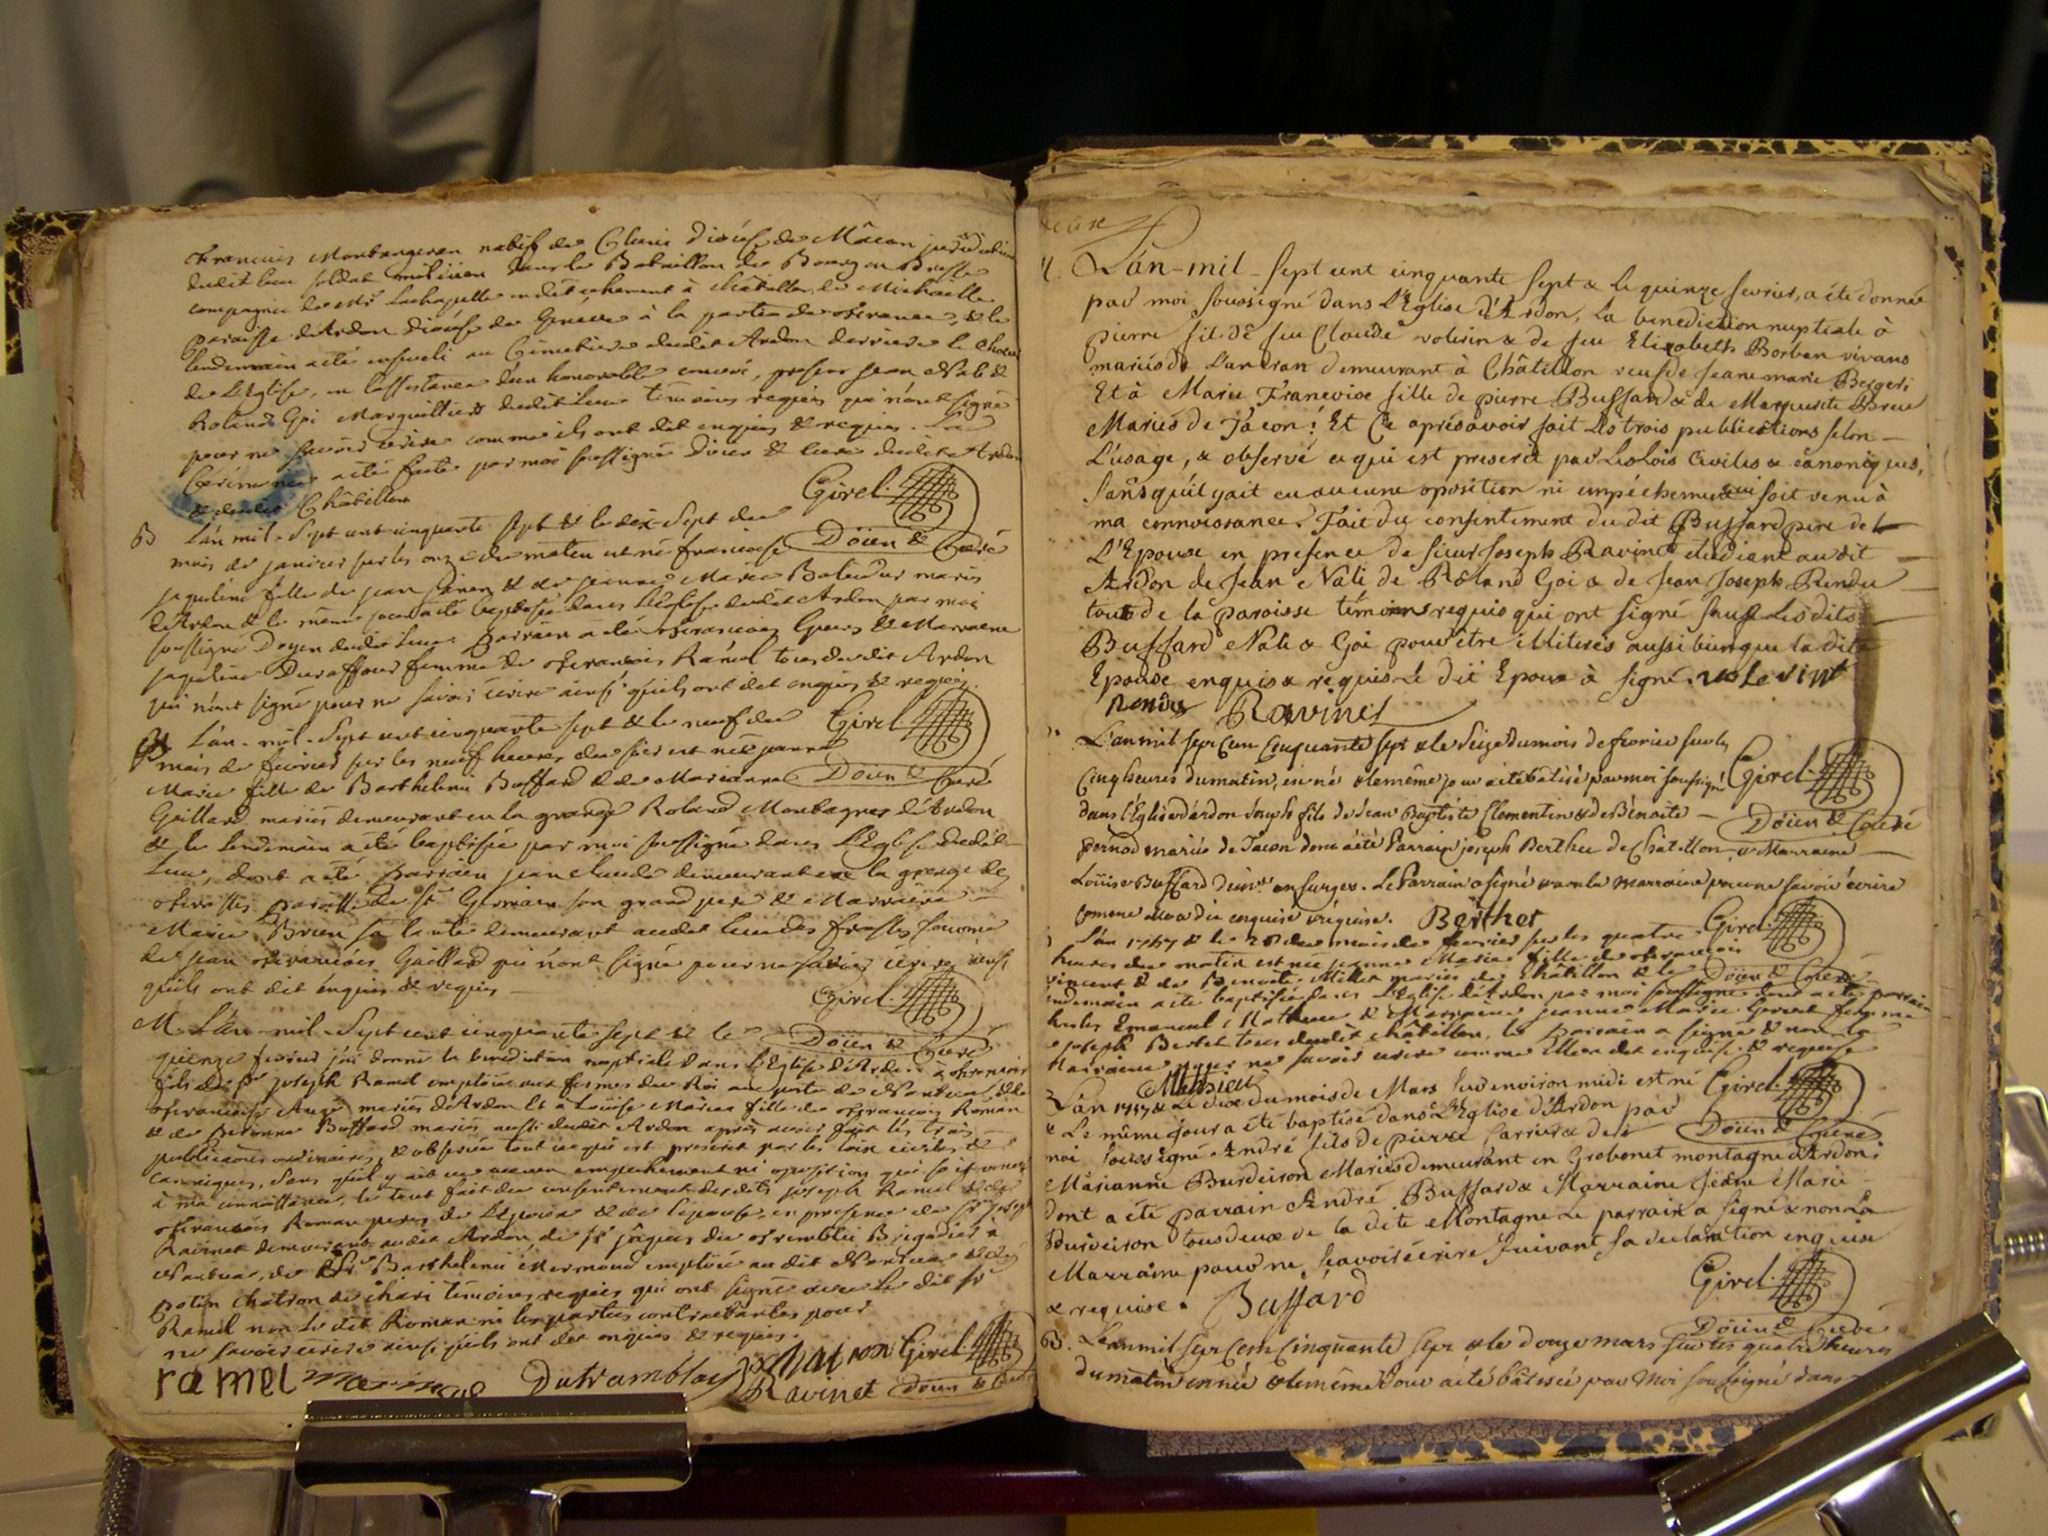 francois Montangeran natif de Diocese de Mâcon
dudit lieu soldat milicien dans le Bataillon de Bourg en Bresse
compagnie de Mr Lachapelle à châtillon de Michaille
paroisse d'Ardon diocese de Geneve à la porte de france, & le
lendemain a été enseveli au Cimetiere dudit Ardon derriere le Choeur
de L'Eglise, en l'assistance d'un honorable convoi, presens jean Nali &
Roland Goi Marguilliers dudit Lieu témoins requis qui n'ont signé
pour ne savoir écrire comme ils ont dit enquis & requis. La
Cérémonie a été faite par moi soussigné Doien & Curé dudit Ardon
& dudit Châtillon
Girel.
Doïen & Curé
B L'an mil-Sept cent cinquante sept & le dix-Sept du
mois de janvier sur les onze du matin est née francoise
jaqueline fille de jean & de jeanne Marie mariés
d'Ardon & le même jour a été baptisée dans L'Eglise dudit Ardon par moi
soussigné Doyen dudit Lieu. Parrain a été francois & Marraine
jaqueline Duraffour femme de francois Ramel tous du dit Ardon
qui n'ont signé pour ne savoir écrire ainsi qu'ils ont dit enquis & requis.
Girel
Doïen & Curé
B L'an-mil-Sept cent cinquante sept & le neuf du
mois de fevrier sur les neuf heures du soir est née jeanne
Marie fille de Barthelemi Buffard & de Marianne
Gaillard mariés demeurant en la grange Roland Montagnes d'Ardon
& le lendemain a été baptisée par moi soussigné dans L'Eglise dudit
Lieu, dont a été Parrain jean claude demeurant en la grange des
frasses Paroisse de st Germain son grand pere & Marraine
Marie Brun sa tante demeurant audit lieu des frasses femme
de jean francois Gaillard qui n'ont signé pour ne savoir écrire ainsi
qu'ils ont dit enquis & requis
Girel.
Doïen & Curé
M L'an-mil-Sept cent cinquante sept & le
quinze fevrier j'ai donné la benediction nuptiale dans L'Eglise d'Ardon à francois
fils de sr joseph Ramel emploïé aux fermes du Roi au poste de Nantua & de
francoise Augé mariés d'Ardon Et à Loüise Marie fille de francois Roman
& de Buffard mariés aussi dudit Ardon après avoir fait les trois
publications ordinaires, & observé tout ce qui est prescrit par les loix civiles &
canoniques, sans qu'il y ait eu aucun empêchement ni oposition qui soit venu
à ma connoissance, le tout fait du consentement desdits joseph Ramel & de
francois Roman peres de l'epoux & de l'epouse, en presence de sr joseph
Ravinet demeurant audit Ardon de sr jâques du tremblei Brigadier à
Nantua, de sr Barthelemi Mermoud emploïé au dit Nantua & de
témoins requis qui ont signé avec le dit sr
Ramel non le dit Roman ni les parties contractantes pour
ne savoir écrire ainsi qu'ils ont dit enquis & requis.
ramel Dutramblay Girel
Ravinet Doïen & Curé
L'án-mil-sept cent cinquante sept & le quinze fevrier, a été donnée
par moi soussigné dans L'Eglise d'Ardon, La benediction nuptiale à
pierre fils de feu Claude & de feu Elizabeth Borben vivans
mariés de Lancran demeurant à Châtillon veuf de jeane marie Bergert
Et à Marie Francoise fille de pierre Buffard & de Marguerite
Mariés de Tacon! Et Ce aprés avoir fait Les trois publications selon
L'usage, & observé ce qui est prescrit par Les Lois Civiles & canoniques,
sans qu'il y ait eu aucune oposition ni empéchement qui soit venu à
ma connoissance. Fait du consentement du dit Buffard pere de
L'Epouse en presence de sieur Joseph Ravinet étudiant au dit
Ardon de Jean Nali de Roland Goi & de Jean Joseph Rendu
tous de la paroisse témoins requis qui ont signé sauf Lesdits
Buffard Nali & Goi pour être illiterés aussi bien que la dite
Epouse enquis & requis Le dit Epoux à signé.
Rendu Ravinet
L'an mil sept Cent Cinquante sept & le seize du mois de fevrier sur les
Cinq heures du matin, est né & le même jour a été batisé par moi soussigné
dans l'Eglise d'Ardon joseph fils de jean Baptiste Clementin & de Bénoite
pernod mariés de Tacon dont a été Parrain joseph Berthet de Châtillon, & Marraine
Loüise Buffard Le Parrain a signé & non la Marraine pour ne savoir écrire
comme elle a dit enquise & requise. Berthet
Girel.
Doïen & Curé
L'an 1757 & le 28 du mois de fevrier sur les quatre
heures du matin est née jeanne Marie fille de francois
vincent & de Benoite Millet mariés de Châtillon & le
lendemain a été baptisée dans L'Eglise d'Ardon par moi soussigné dont a été parrain
Emanuel Mathieu & Marraine jeanne Marie femme
de joseph Bertet tous dudit châtillon, le parrain a signé & non la
Marraine pour ne savoir écrire comme elle a dit enquise & requise
Mathieu
Girel.
Doïen & Curé
L'an 1757 & Le dix du mois de Mars sur environ midi est né
& Le même jour a été baptisé dans L'Eglise d'Ardon par
moi soussigné André fils de pierre & de
Marianne Burdeiron Mariés demeurant en Grobonet montagne d'Ardon;
dont a été parrain André Buffard & Marraine Marie
Burdeiron tous deux de la dite Montagne Le parrain a signé & non La
Marraine pour ne sçavoir écrire suivant sa declaration enquise
& requise. Buffard
Girel.
Doïen & Curé
B. L'an mil sept Cent Cinquante sept & le douze mars sur les quatre heures
du matin est né & le même jour a été bâtisé par Moi soussigné dans
Girel.
Doïen & Curé